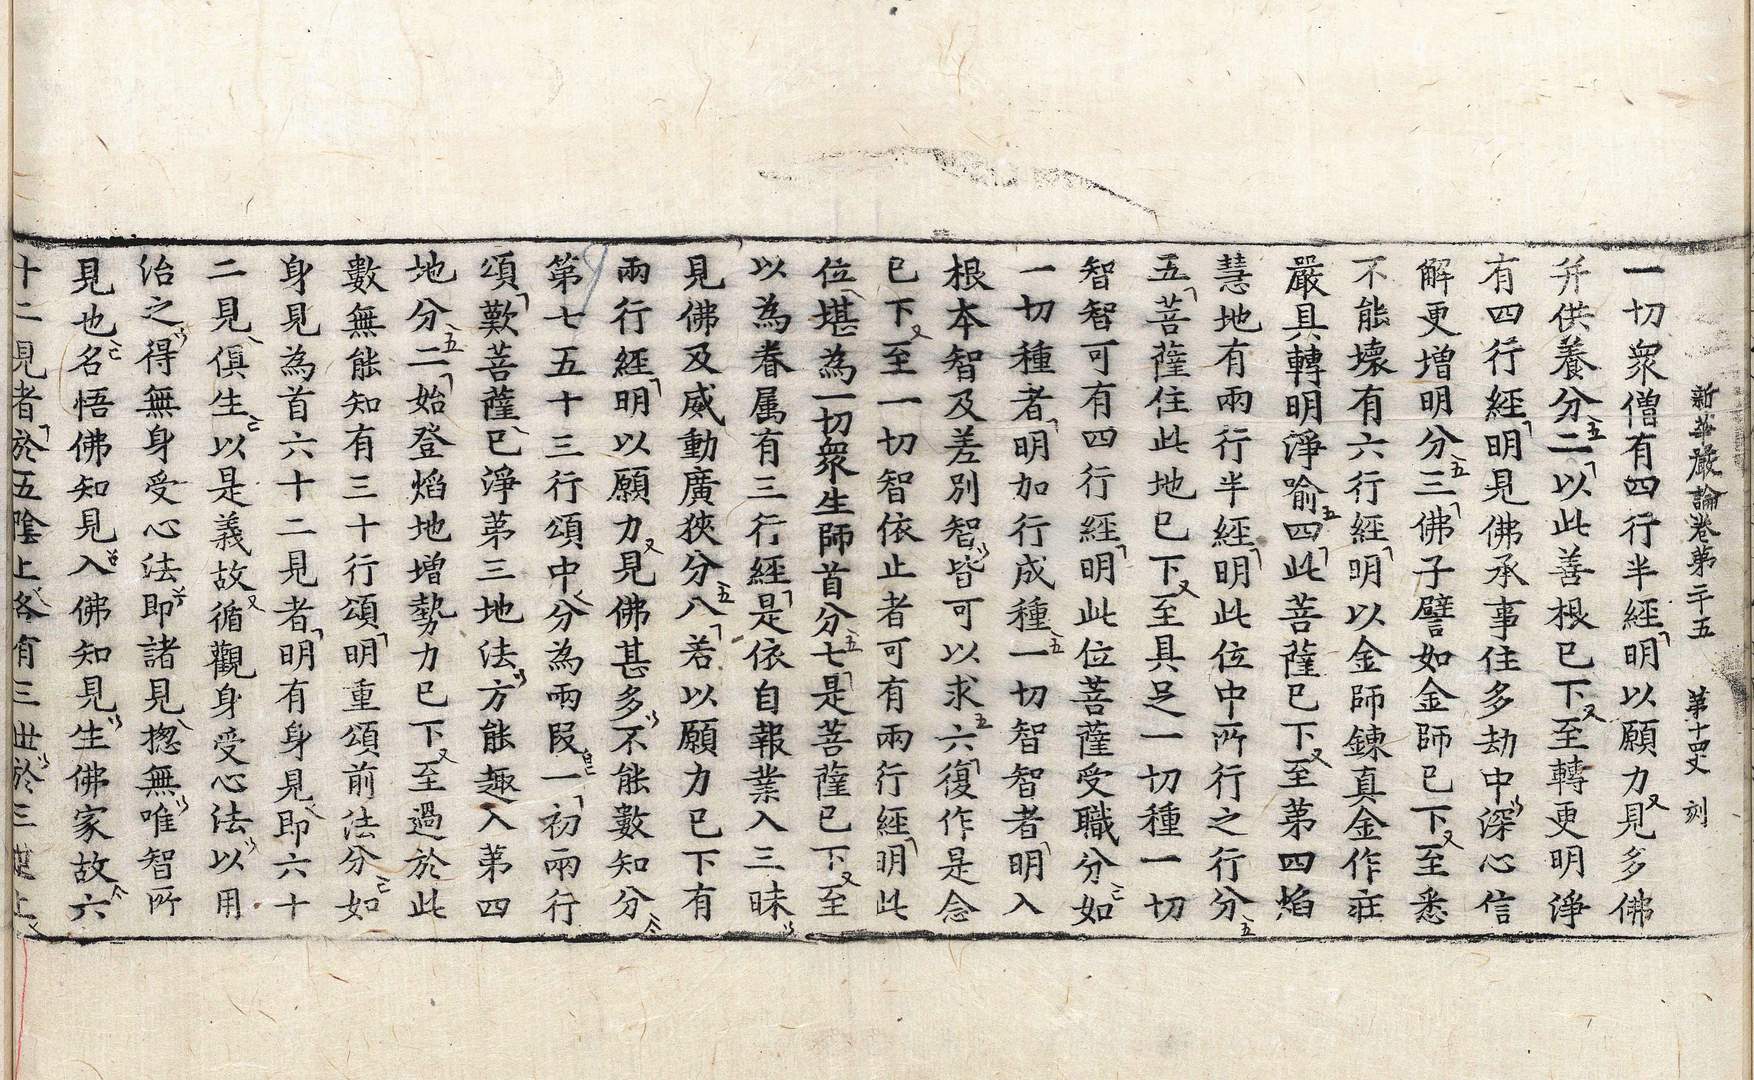 新華嚴論卷第二十五 第十四丈 刻
一切衆僧有四行半經明以願力見多佛
幷供養分二以此善根已下至轉更明淨
有四行經明見佛承事住多劫中深心信
解更增明分三佛子譬如金師已下至悉
不能壞有六行經明以金師鍊真金作莊
嚴具轉明淨喻四此菩薩已下至第四焰
慧地有兩行半經明此位中所行之行分
五菩薩住此地已下至具足一切種一切
智智可有四行經明此位菩薩受職分如
一切種者明加行成種一切智智者明入
根本智及差別智皆可以求六復作是念
已下至一切智依止者可有兩行經明此
位堪為一切衆生師首分七是菩薩已下至
以為眷属有三行經是依自報業入三昧
見佛及威動廣狹分八若以願力已下有
兩行經明以願力見佛甚多不能數知分
第七五十三行頌中分為兩段一初兩行
頌歎菩薩已淨第三地法方能趣入第四
地分二始登焰地增勢力已下至過於此
數無能知有三十行頌明重頌前法分如
身見為首六十二見者明有身見即六十
二見俱生以是義故循觀身受心法以用
治之得無身受心法即諸見揔無唯智所
見也名悟佛知見入佛知見生佛家故六
十二見者於五陰上各有三世於三世上